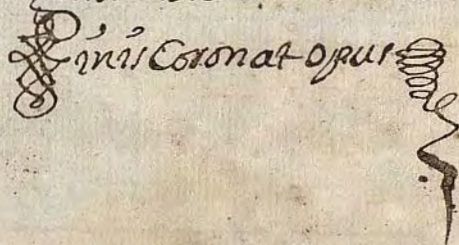 Finis Coronat opus